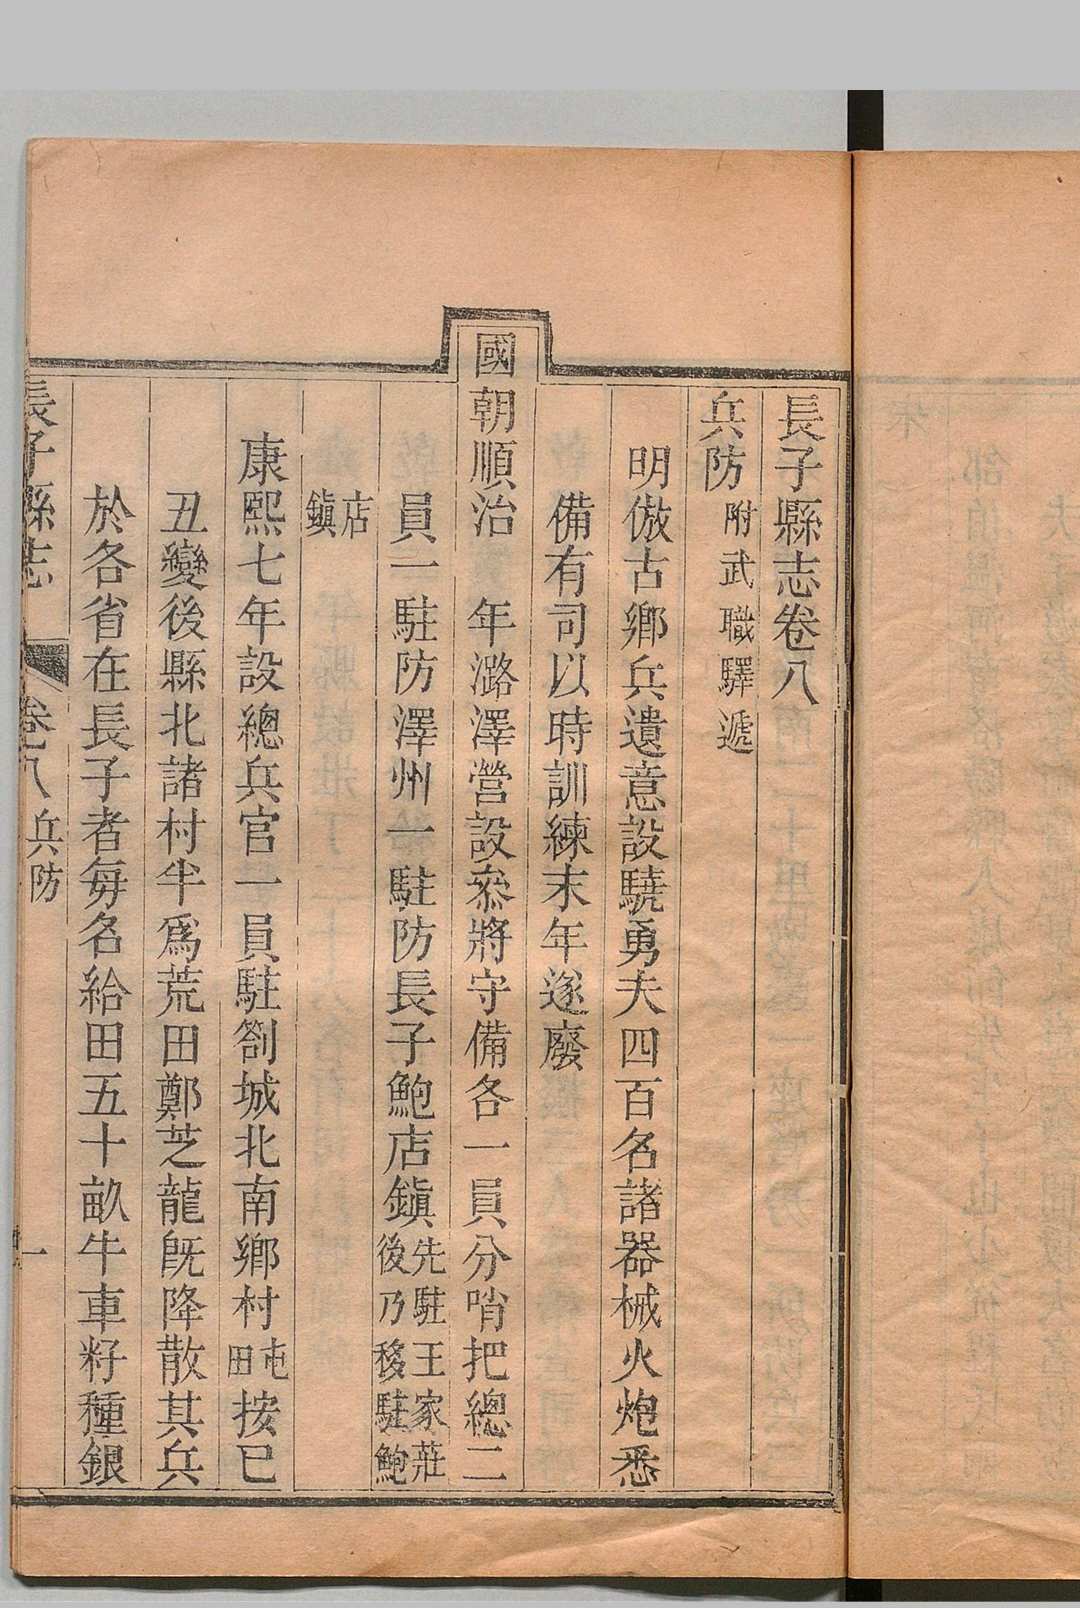 長子縣志卷八
兵防附武職驛遞
明倣古鄉兵遺意設驍勇夫四百名諸器械火炮悉
備有司以時訓練末年遂廢
國朝順治　年潞澤營設叅將守備各一員分哨把總二
員一駐防澤州一駐防長子鮑店鎭先駐王家莊後乃移駐鮑
店鎭
康熙七年設總兵官一員駐劄城北南鄉村屯田按已
丑變後縣北諸村半爲荒田鄭芝龍旣降散其兵
於各省在長子者每名給田五十畝牛車籽種銀
長子縣志　卷八　兵防　一